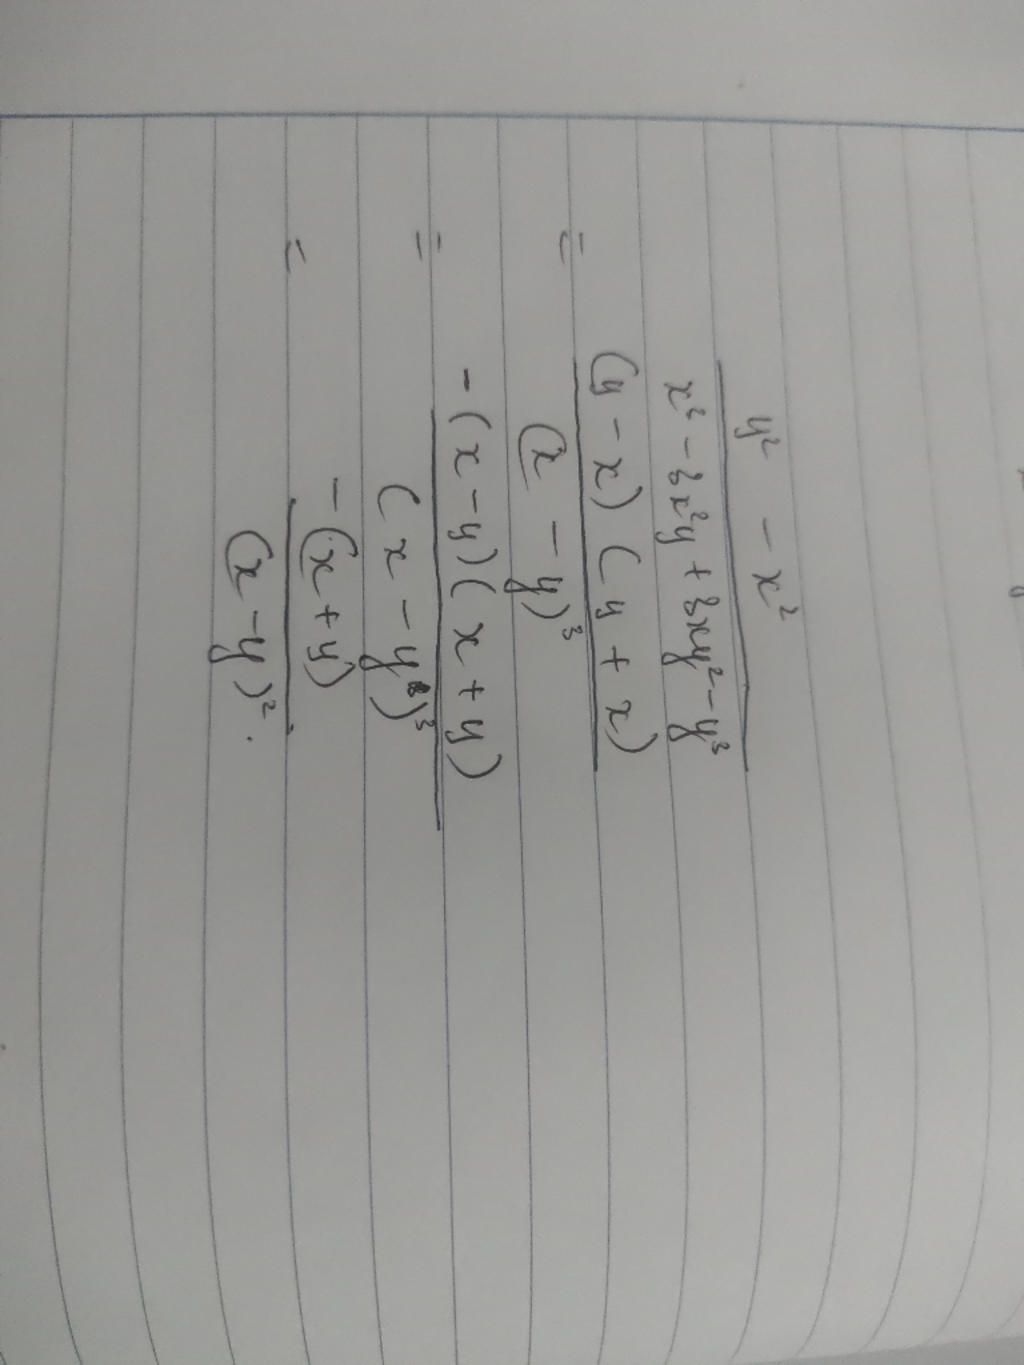 y² - x²
x³ - 3x²y + 3xy² - y³
= (y - x) (y + x)
(x - y)³
= -(x - y) (x + y)
(x - y)³
= -(x + y)
(x - y)².